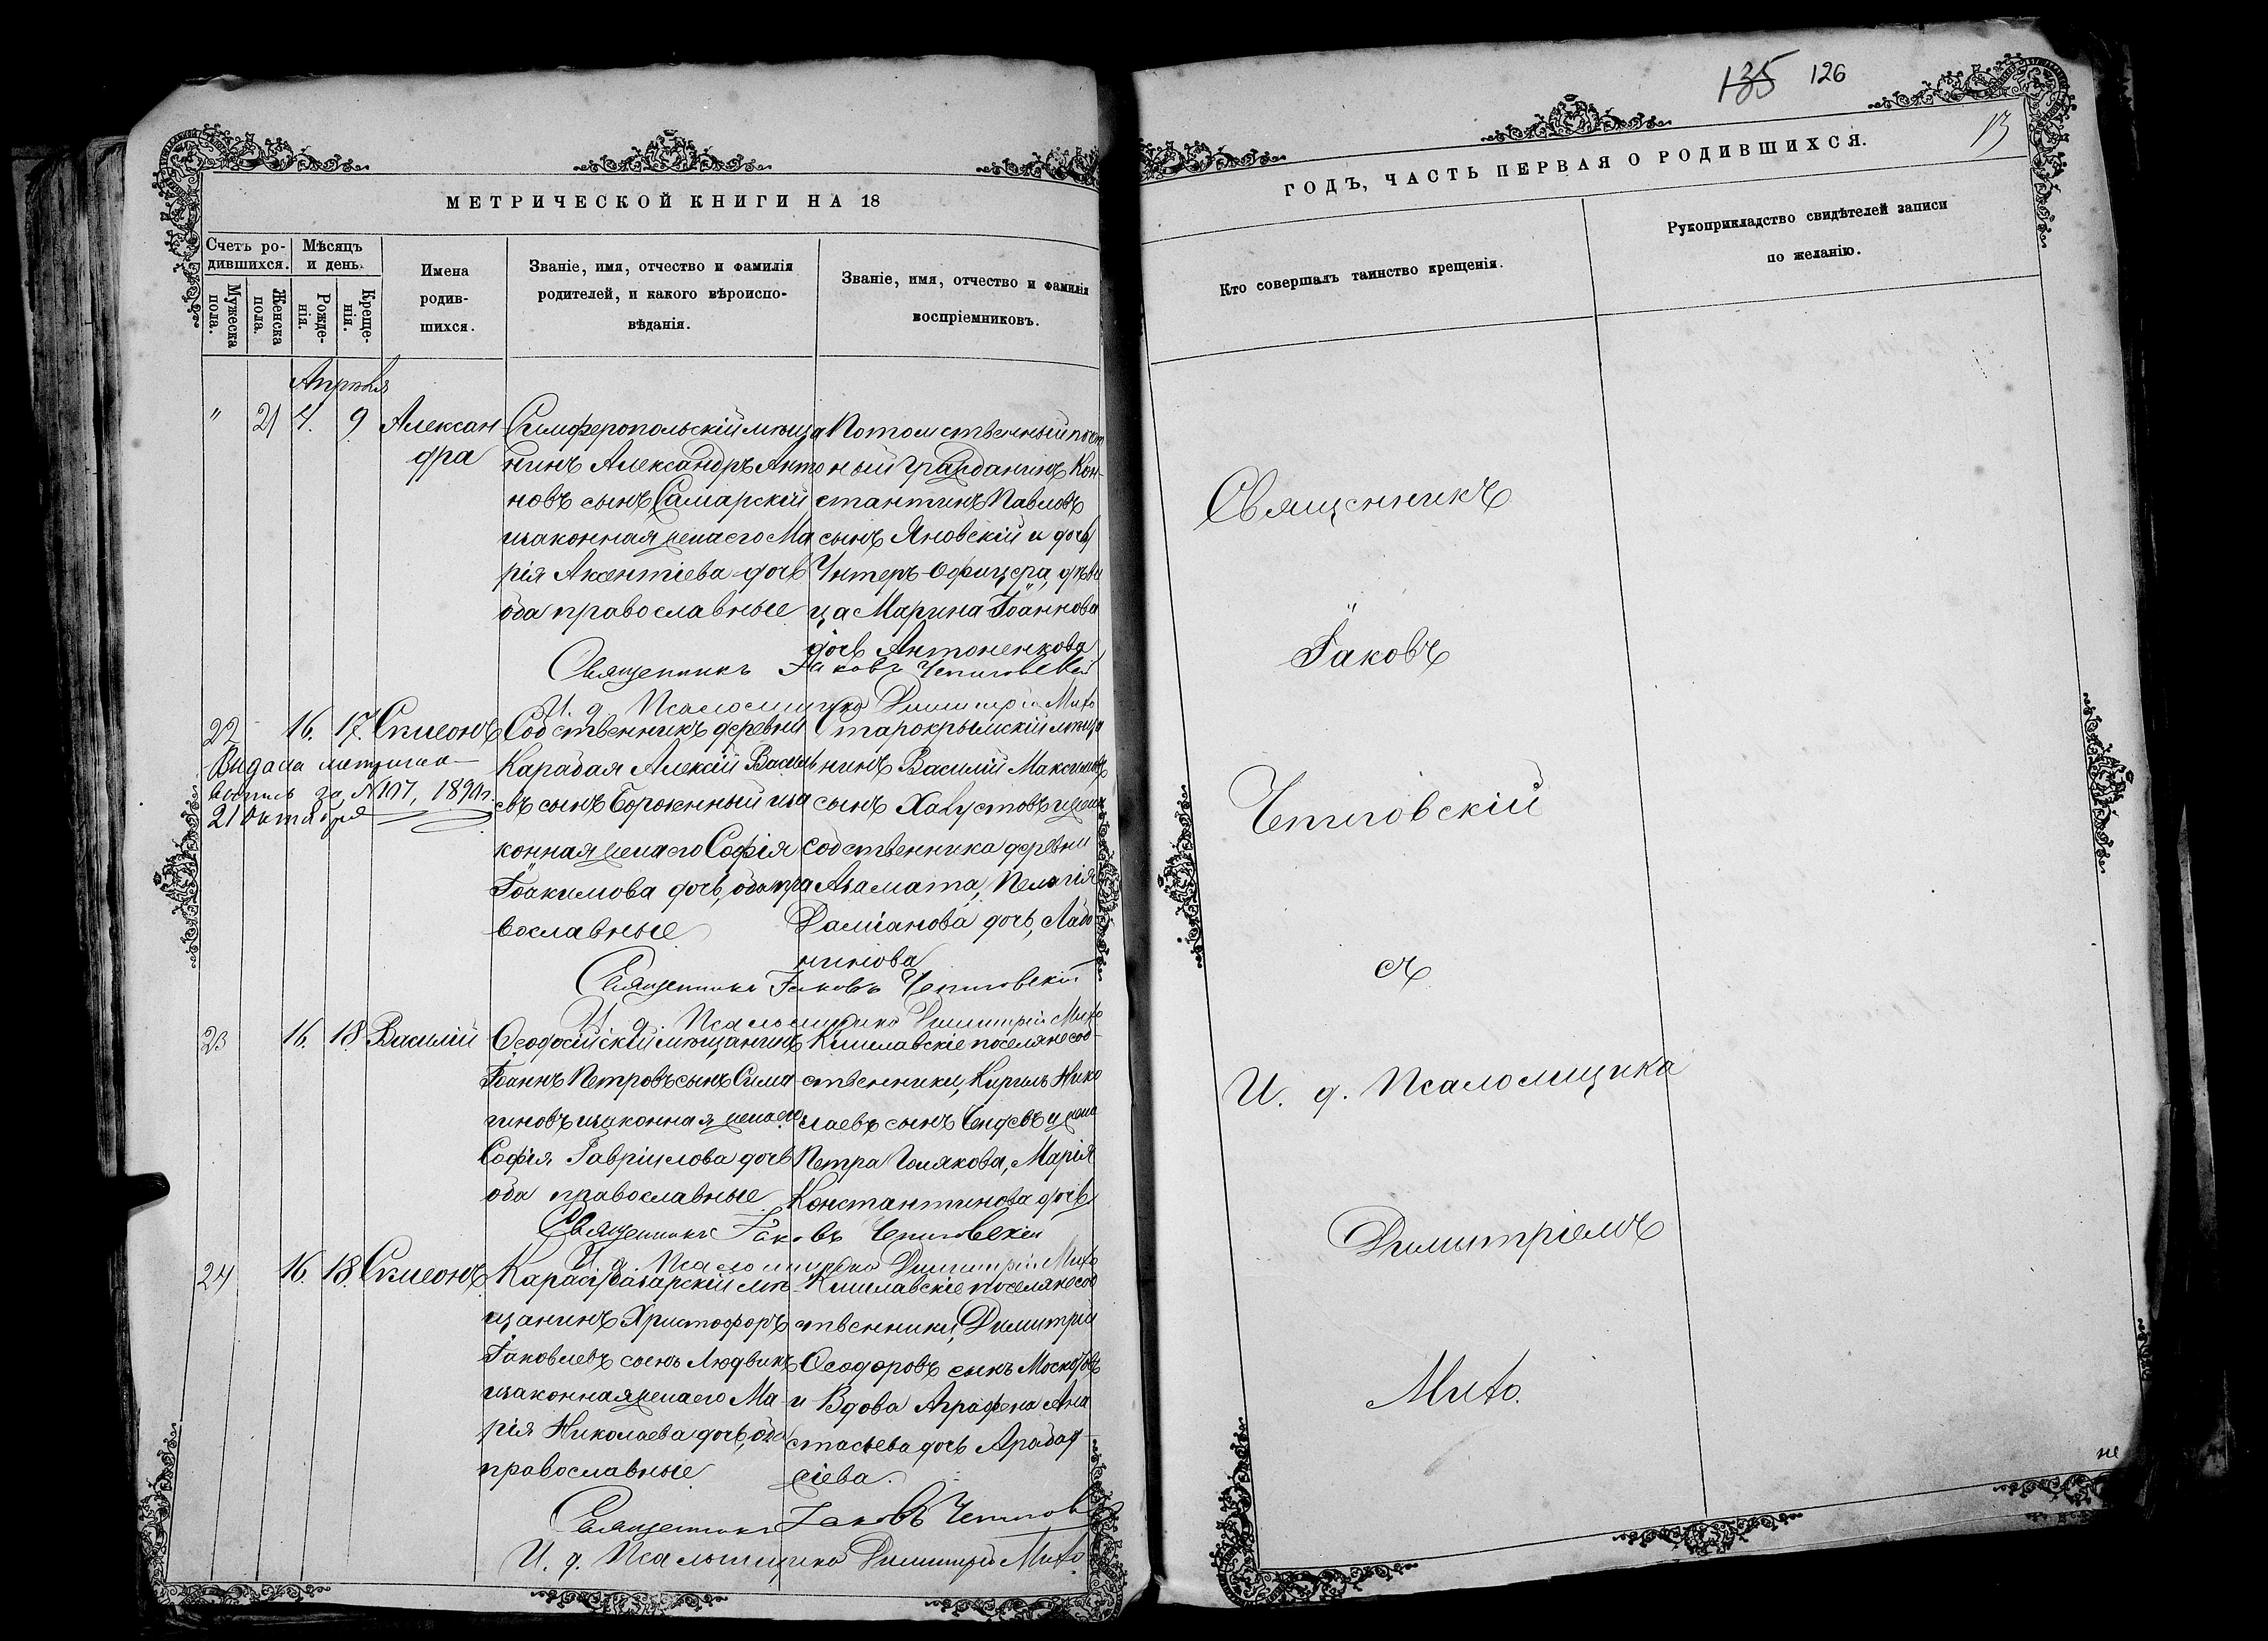 МЕТРИЧЕСКОЙ КНИГИ НА 18
Счетъ ро-
дившихся.
Мужеска
пола.
Женска
пола.
Мѣсяцъ
и день.
Рожде-
нія.
Креще-
нія.
Имена
родив-
шихся.
Званіе, имя, отчество и фамилія
родителей, и какого вѣроиспо-
вѣданія.
Званіе, имя, отчество и фамилія
воспріемниковъ.
Апрѣля
" 21 4. 9. Алексан
дра
Симферопольскій мѣща
нинъ Александръ Анто
новъ сынъ Самарскій
и законная жена его Ма
рія Аксентіева дочь
оба православные
Потомственный почт
ный гражданинъ Кон-
стантинъ Павловъ
сынъ Яновскій и дочь
Унтеръ-Офицера, дѣви
ца Марина Іоаннова
дочь Антоненкова
Священникъ Іаковъ Чепиговскій
И. д. Псаломщика Димитрій Михо
22 16. 17. Симеонъ
Выдана метрич
выпись за №107, 1890г.
21 Октября
Собственникъ деревни
Карабая Алексій Василь
евъ сынъ Бороженный и за
конная жена его Софія
Іоакимова дочь, оба пра
вославные
Старокрымскій мѣща
нинъ Василій Максимовъ
сынъ Хавустовъ и жена
собственника деревни
Азамата, Пелагія
Даміанова дочь, Ладо
нинова
Священникъ Іаковъ Чепиговскій
И. д. Псаломщика Димитрій Михо
23 16. 18. Василій
Ѳеодосійскій мѣщанинъ
Іоаннъ Петровъ сынъ Сима
гиновъ и законная жена его
Софія Гавріилова дочь
оба православные
Кишлавскіе поселяне соб-
ственники, Кирилъ Нико
лаевъ сынъ Чендевъ и жена
Петра Полякова, Марія
Константинова дочь
Священникъ Іаковъ Чепиговскій
И. д. Псаломщика Димитрій Михо
24 16. 18. Симеонъ
Карасубазарскій мѣ-
щанинъ Христофоръ
Іаковлевъ сынъ Людвикъ
и законная жена его Ма-
рія Николаева дочь, оба
православные
Кишлавскіе поселяне соб
ственники, Димитрій
Ѳеодоровъ сынъ Москотовъ
и Вдова Аграфена Ана
стасьева дочь Арабад-
жіева.
Священникъ Іаковъ Чепигов
И. д. Псаломщика Димитрій Михо.
135 126
13
ГОДЪ, ЧАСТЬ ПЕРВАЯ О РОДИВШИХСЯ.
Кто совершалъ таинство крещенія.
Рукоприкладство свидѣтелей записи
по желанію.
Священникъ
Іаковъ
Чепиговскій
съ
И. д. Псаломщика
Димитріемъ
Михо.